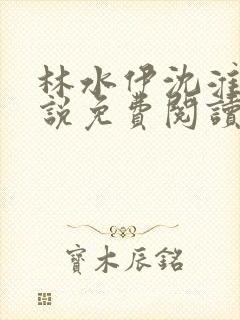 林水伊沈淮
說免費閱讀
寶木辰銘